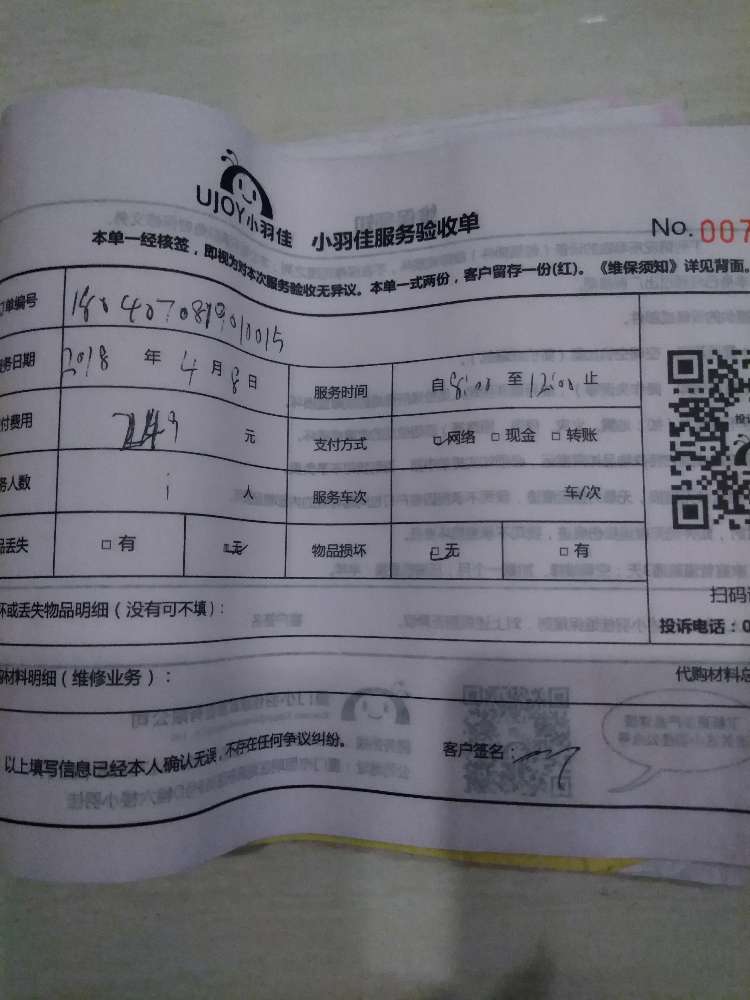 UJOY小羽佳 小羽佳服务验收单
No. 007
本单一经核签，即视为对本次服务验收无异议。本单一式两份，客户留存一份(红)。《维保须知》详见背面。
订单编号 1804070819010015
服务日期 2018 年 4 月 8 日 服务时间 自8:00 至 12:00 止
付费用 元 支付方式 网络 □ 现金 □ 转账
务人数 1 人 服务车次 车/次
品丢失 □ 有 无 物品损坏 无 □ 有
坏或丢失物品明细（没有可不填）：
扫码
投诉电话：0
购材料明细（维修业务）：
代购材料总
以上填写信息已经本人确认无误，不存在任何争议纠纷。
客户签名：